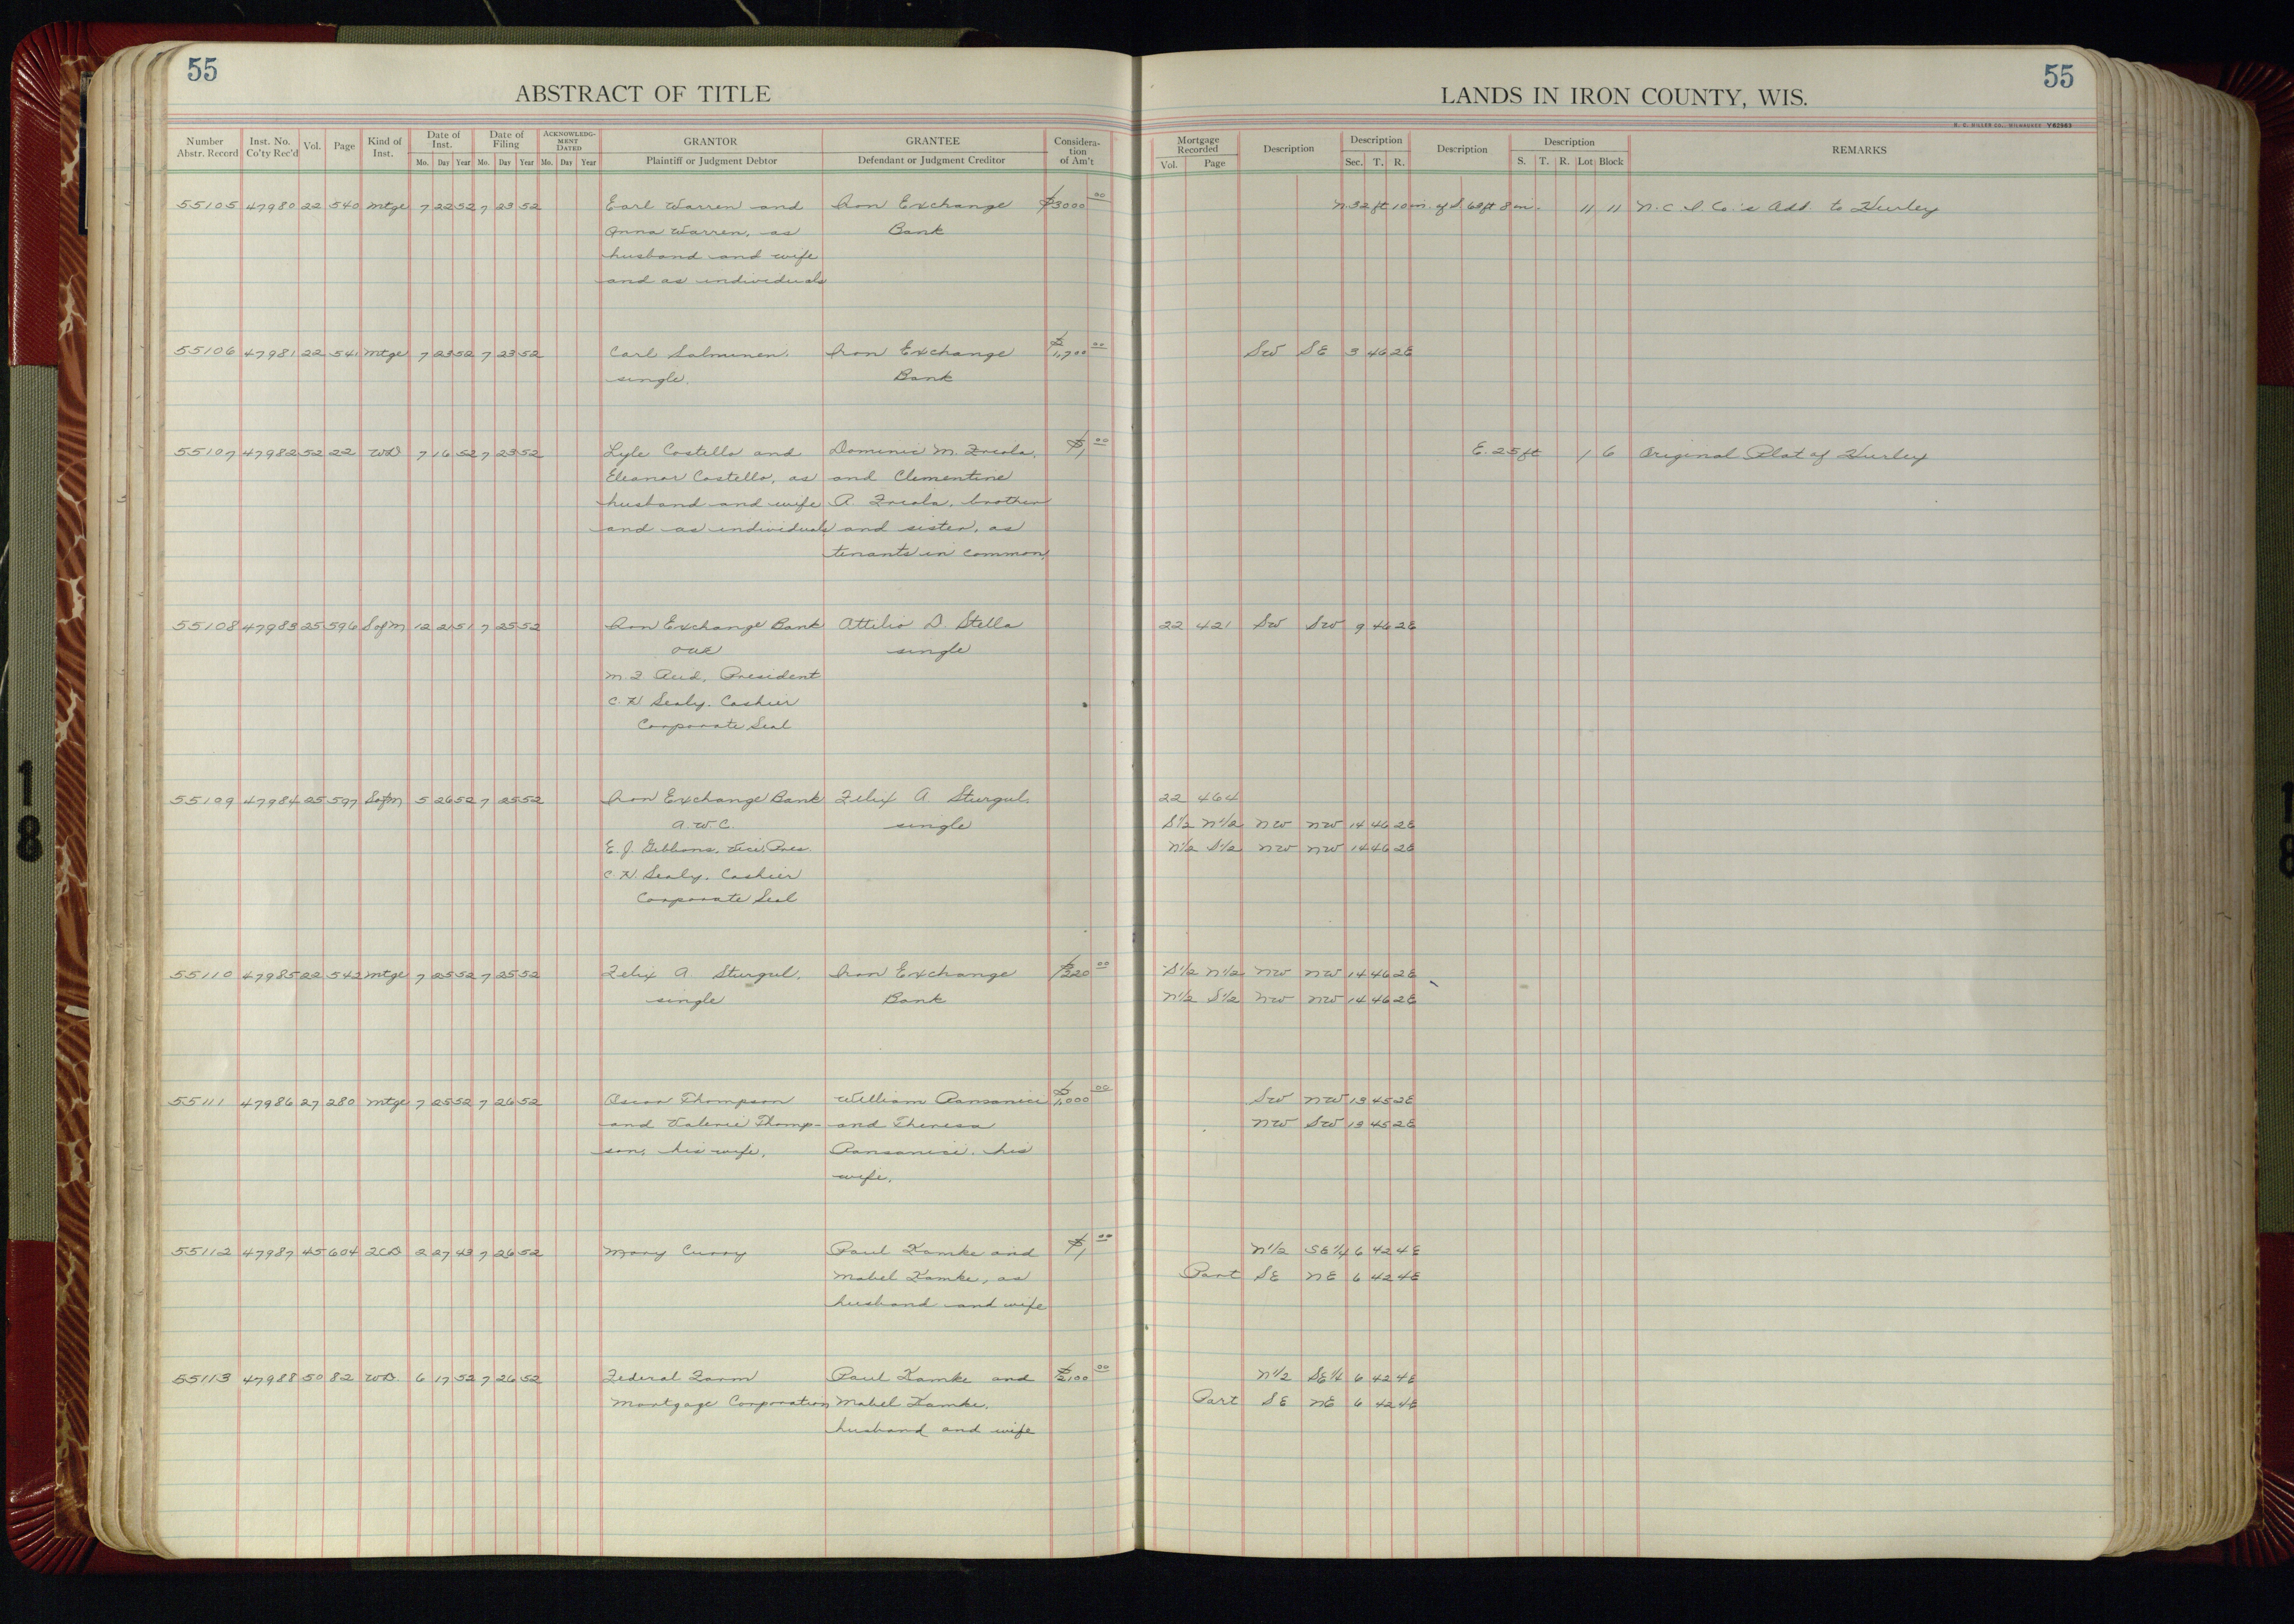 55
ABSTRACT OF TITLE
LANDS IN IRON COUNTY, WIS.
55
H. C. MILLER CO., MILWAUKEE Y62963
Number Abstr. Record Inst. No. Co'ty Rec'd Vol. Page Kind of Inst. Date of Inst. Mo. Day Year Date of Filing Mo. Day Year ACKNOWLEDGMENT DATED Mo. Day Year GRANTOR Plaintiff or Judgment Debtor GRANTEE Defendant or Judgment Creditor Consideration of Am't
Mortgage Recorded Vol. Page Description Description Sec. T. R. Description Description S. T. R. Lot Block REMARKS
55105 47980 22 540 Mtge 7 22 52 7 23 52 Earl Warren and Iron Exchange $3000 00 N. 32 ft 10 in. of S. 68 ft 8 in. 11 11 N. C. I. Co.'s Add. to Hurley
Anna Warren, as Bank
husband and wife
and as individuals
55106 47981 22 541 Mtge 7 23 52 7 23 52 Carl Salminen, Iron Exchange $1,700 00 SW SE 3 46 2E
single. Bank
55107 47982 52 22 WD 7 16 52 7 23 52 Lyle Costello and Dominic M. $1 00 E. 25 ft 1 6 Original Plat of Hurley
Eleanor Costello, as and Clementine
husband and wife A. brother
and as individuals and sister, as
tenants in common,
55108 47983 25 596 S of M 12 21 51 7 25 52 Iron Exchange Bank Attilio D. Stella 22 421 SW SW 9 46 2E
single
M. J. Aud, President
C. H. Sealy, Cashier
Corporate Seal
55109 47984 25 597 S of M 5 26 52 7 25 52 Iron Exchange Bank Felix A. Sturgul, 22 464
A. W. C. single S1/2 N1/2 NW NW 14 46 2E
E. J. Gibbons, Vice, Pres. N1/2 S1/2 NW NW 14 46 2E
C. H. Sealy, Cashier
Corporate Seal
55110 47985 22 542 Mtge 7 25 52 7 25 52 Felix A Sturgul, Iron Exchange $320 00 S1/2 N1/2 NW NW 14 46 2E
single Bank N1/2 S1/2 NW NW 14 46 2E
55111 47986 27 280 Mtge 7 25 52 7 26 52 Oscar Thompson William Ransanici $1,000 00 SW NW 13 45 2E
and Valerie Thomp- and Theresa NW SW 13 45 2E
son, his wife, Ransanici, his
wife.
55112 47987 45 604 2CD 2 27 43 7 26 52 Mary Curry Paul Kamke and $1 00 N1/2 SE1/4 6 42 4E
Mabel Kamke, as Part SE NE 6 42 4E
husband and wife
55113 47988 50 82 WD. 6 17 52 7 26 52 Federal Farm Paul Kamke and $2,100 00 N1/2 SE1/4 6 42 4E
Mortgage Corporation Mabel Kamke, Part SE NE 6 42 4E
husband and wife
18